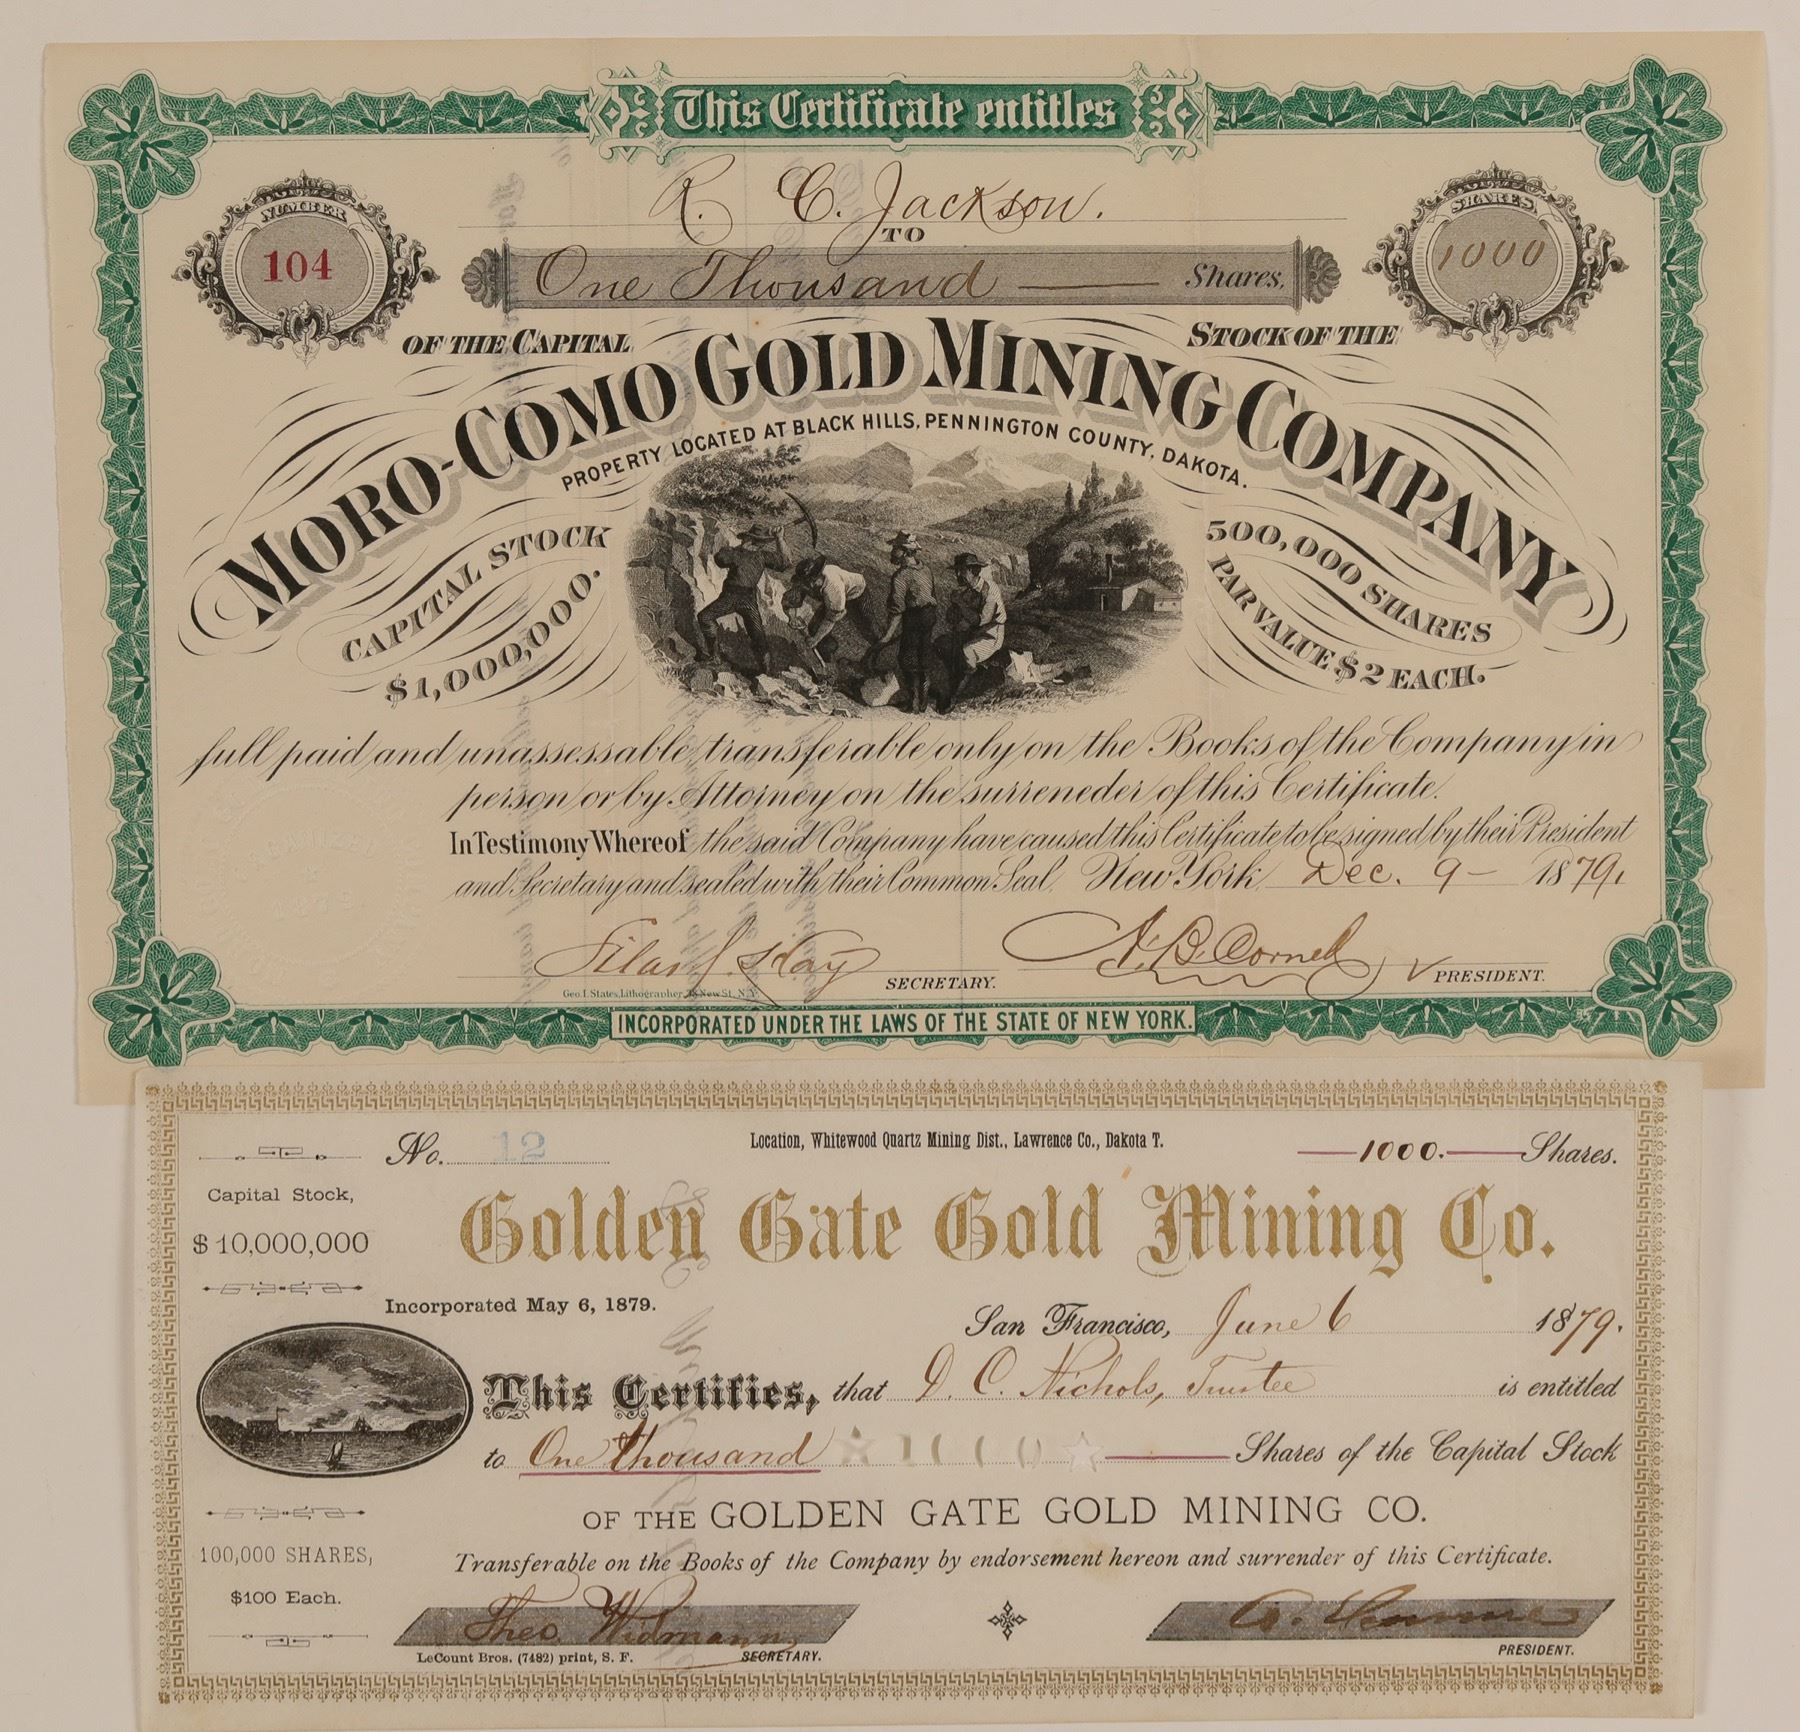 This Certificate entitles
R. C. Jackson.
NUMBER
104
TO
SHARES.
1000
One Thousand — Shares.
OF THE CAPITAL STOCK OF THE
MORO-COMO GOLD MINING COMPANY
PROPERTY LOCATED AT BLACK HILLS, PENNINGTON COUNTY, DAKOTA.
CAPITAL STOCK
$1,000,000.
500,000 SHARES
PAR VALUE $2 EACH.
full paid and unassessable, transferable only on the Books of the Company in
person or by Attorney on the surreneder of this Certificate.
In Testimony Whereof the said Company have caused this Certificate to be signed by their President
and Secretary and sealed with their Common Seal. New York Dec. 9 - 1879.
Silas J. Hay SECRETARY. A. B. Cornell PRESIDENT.
Geo. I. States, Lithographer, New St. N.Y.
INCORPORATED UNDER THE LAWS OF THE STATE OF NEW YORK.
No. 12
Location, Whitewood Quartz Mining Dist., Lawrence Co., Dakota T.
1000. Shares.
Capital Stock,
$10,000,000
Golden Gate Gold Mining Co.
Incorporated May 6, 1879.
San Francisco, June 6 1879.
This Certifies, that D. C. Nichols, Trustee is entitled
to One thousand ★1000★ Shares of the Capital Stock
OF THE GOLDEN GATE GOLD MINING CO.
100,000 SHARES,
$100 Each.
Transferable on the Books of the Company by endorsement hereon and surrender of this Certificate.
Theo. Widmann
SECRETARY.
PRESIDENT.
LeCount Bros. (7482) print, S. F.